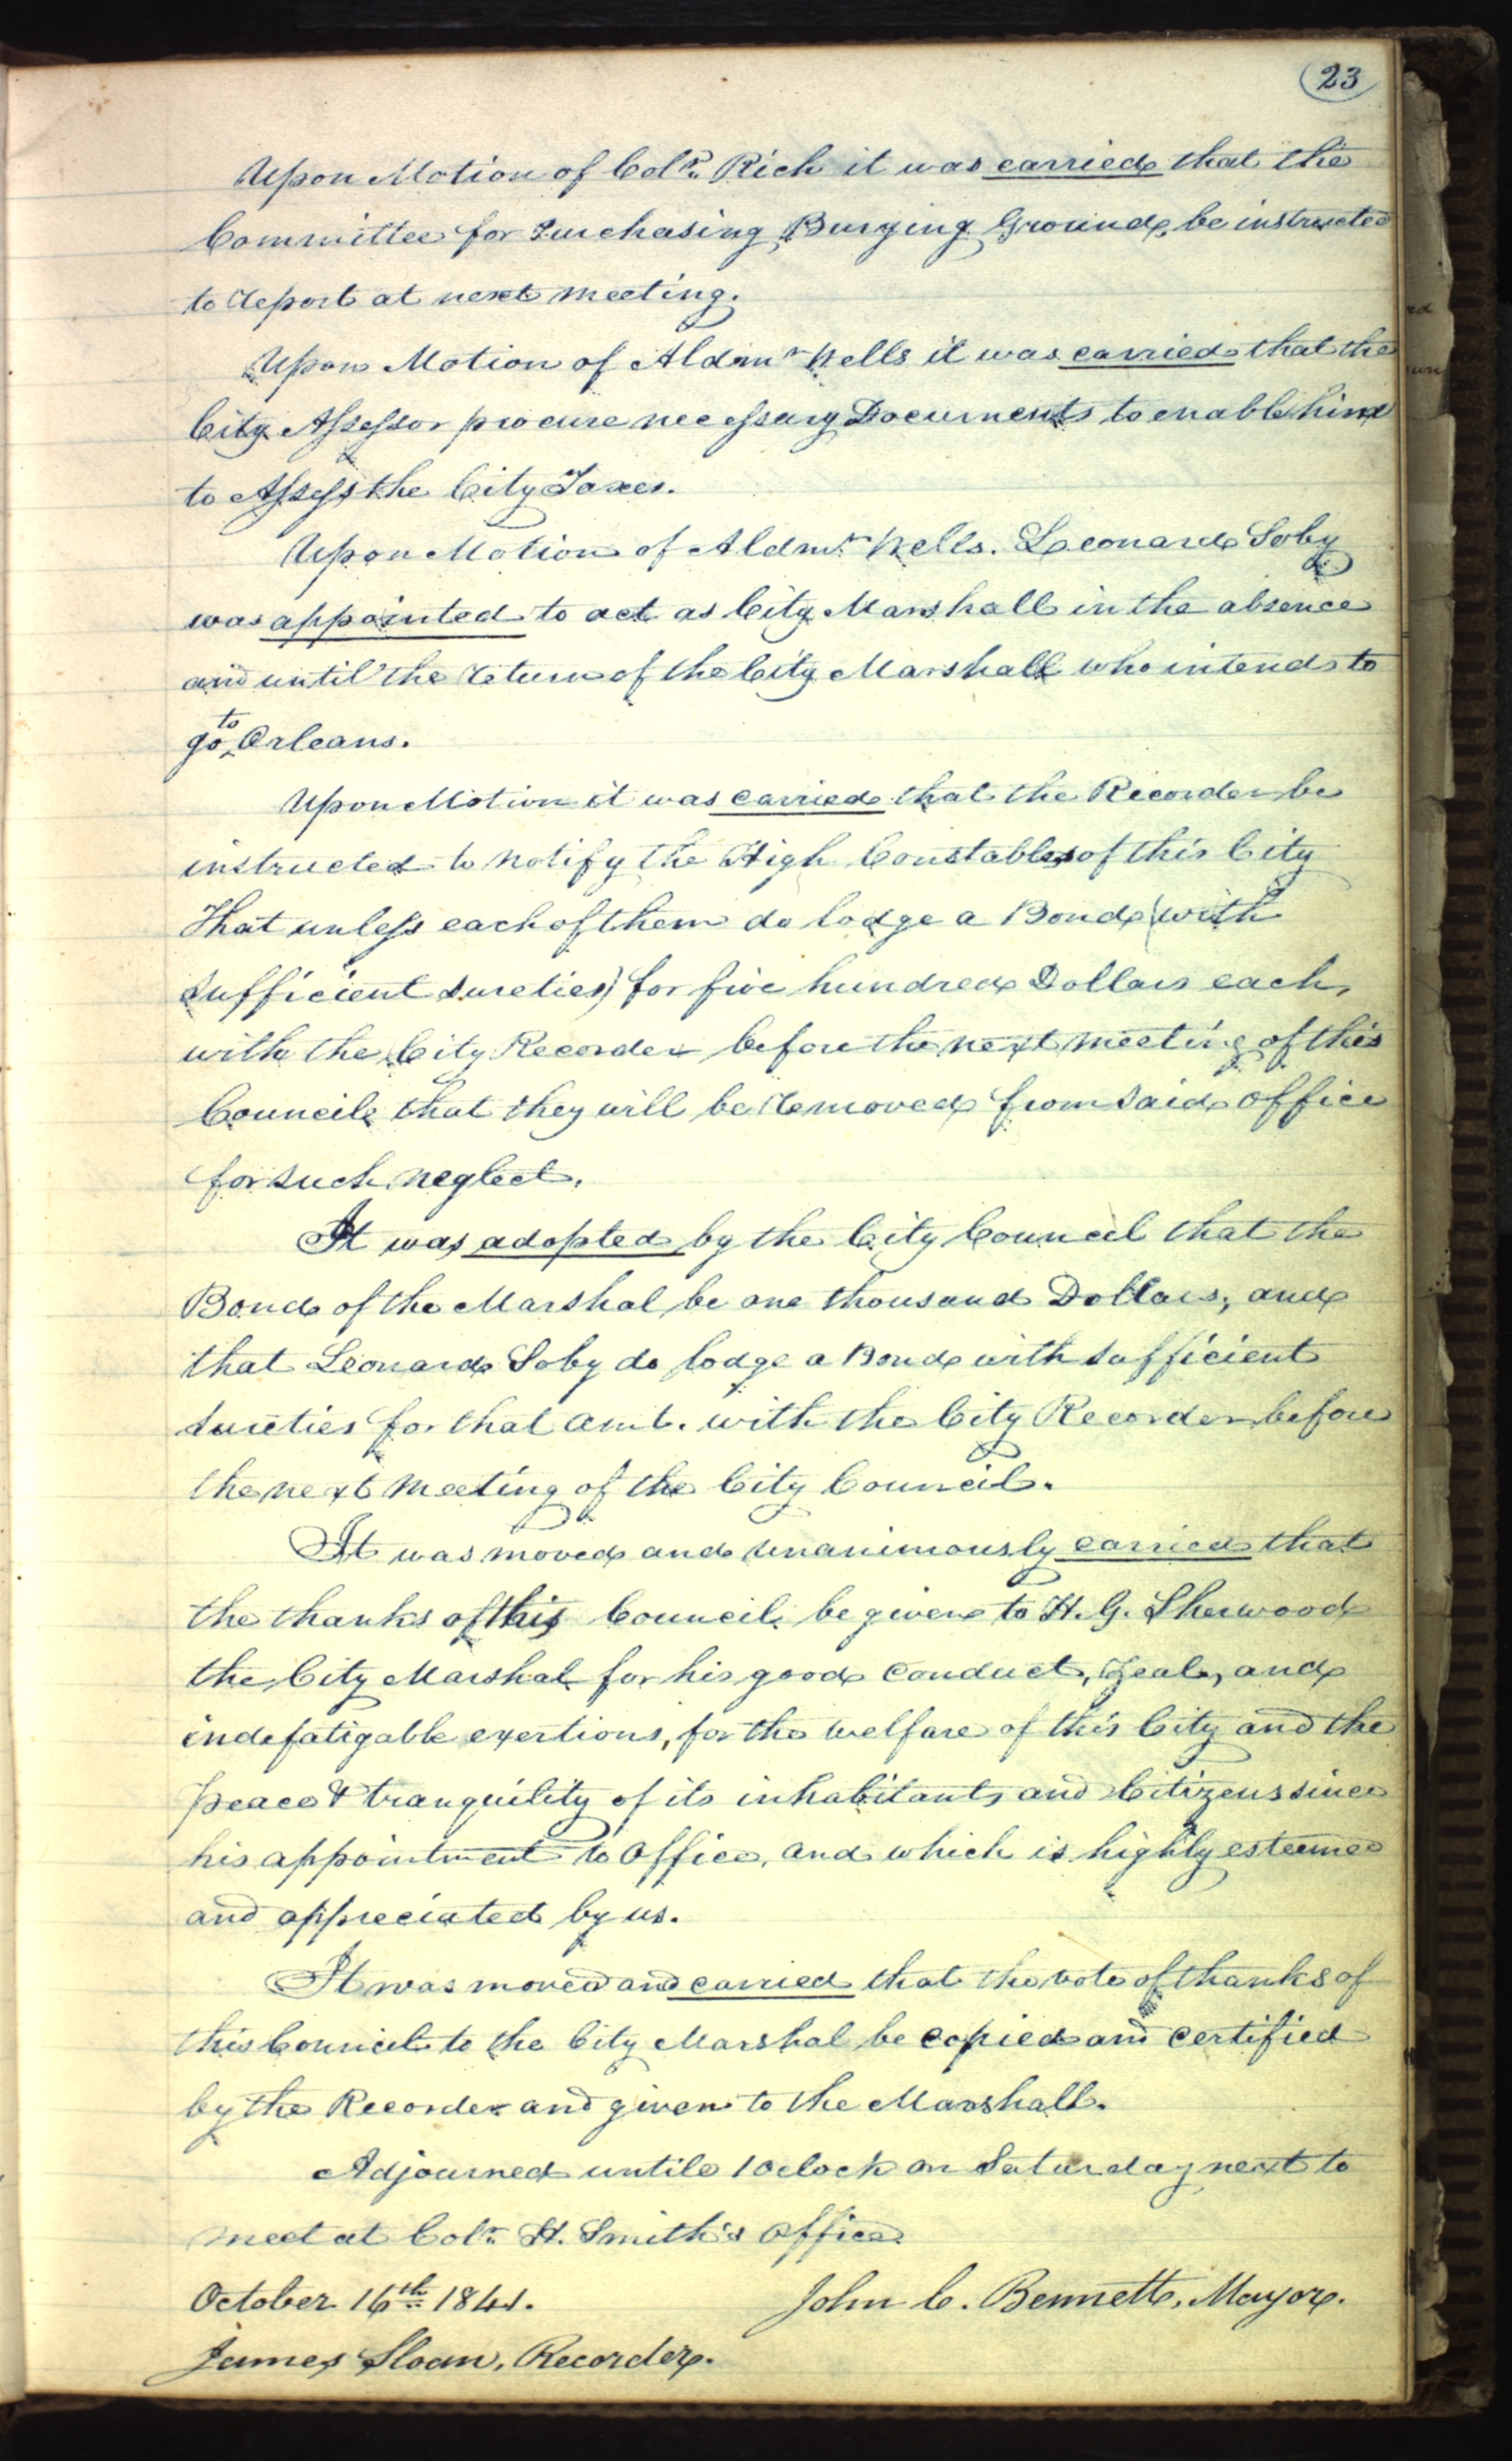 23
Upon Motion of Colr. Rich it was carried that the
Committee for Purchasing Burying Ground, be instructed
to report at next meeting.
Upon Motion of Aldmn Wells it was carried that the
City Assessor procure necessary Documents to enable him
to Assess the City Taxes.
Upon Motion of Aldmn Wells. Leonard Soby
was appointed to act as City Marshall in the absence
and until the return of the City Marshall who intends to
go to Orleans.
Upon Motion it was carried that the Recorder be
instructed to notify the High Constables of this City
That unless each of them do lodge a Bond (with
sufficient sureties) for five hundred Dollars each,
with the City Recorder before the next meeting of this
Council that they will be removed from said office
for such neglect.
It was adopted by the City Council that the
Bond of the Marshal be one thousand Dollars, and
that Leonard Soby do lodge a Bond with sufficient
sureties for that amt. with the City Recorder before
the next meeting of the City Council.
It was moved and unanimously carried that
the thanks of this Council be given to H. G. Sherwood
the City Marshal for his good conduct, Zeal, and
indefatigable exertions, for the welfare of this City and the
peace & tranquility of its inhabitants and Citizens since
his appointment to office, and which is highly esteemed
and appreciated by us.
It was moved and carried that the vote of thanks of
this Council to the City Marshal be copied and certified
by the Recorder and given to the Marshall.
Adjourned until 1 oclock on Saturday next to
meet at Colr. H. Smith's office.
October 16th 1841. John C. Bennett, Mayor.
James Sloan, Recorder.